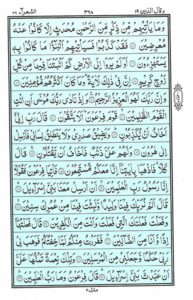 وقال الذین ١٩ ٣٦٨ الشعرآء ٢٦
وَمَا يَأْتِيْهِمْ مِّنْ ذِكْرٍ مِّنَ الرَّحْمٰنِ مُحْدَثٍ اِلَّا كَانُوْا عَنْهُ
مُعْرِضِيْنَ فَقَدْ كَذَّبُوْا فَسَيَأْتِيْهِمْ اَنْۢبٰٓؤُا مَا كَانُوْا بِهٖ
يَسْتَهْزِءُوْنَ اَوَلَمْ يَرَوْا اِلَى الْاَرْضِ كَمْ اَنْۢبَتْنَا فِيْهَا مِنْ كُلِّ
زَوْجٍ كَرِيْمٍ اِنَّ فِيْ ذٰلِكَ لَاٰيَةً وَمَا كَانَ اَكْثَرُهُمْ مُّؤْمِنِيْنَ
وَاِنَّ رَبَّكَ لَهُوَ الْعَزِيْزُ الرَّحِيْمُ وَاِذْ نَادٰى رَبُّكَ مُوْسٰٓى اَنِ ائْتِ
الْقَوْمَ الظّٰلِمِيْنَ قَوْمَ فِرْعَوْنَ اَلَا يَتَّقُوْنَ قَالَ رَبِّ اِنِّيْٓ اَخَافُ
اَنْ يُّكَذِّبُوْنِ وَيَضِيْقُ صَدْرِيْ وَلَا يَنْطَلِقُ لِسَانِيْ فَاَرْسِلْ
اِلٰى هٰرُوْنَ وَلَهُمْ عَلَيَّ ذَنْۢبٌ فَاَخَافُ اَنْ يَّقْتُلُوْنِ قَالَ
كَلَّا فَاذْهَبَا بِاٰيٰتِنَآ اِنَّا مَعَكُمْ مُّسْتَمِعُوْنَ فَأْتِيَا فِرْعَوْنَ فَقُوْلَآ
اِنَّا رَسُوْلُ رَبِّ الْعٰلَمِيْنَ اَنْ اَرْسِلْ مَعَنَا بَنِيْٓ اِسْرَآءِيْلَ
قَالَ اَلَمْ نُرَبِّكَ فِيْنَا وَلِيْدًا وَّلَبِثْتَ فِيْنَا مِنْ عُمُرِكَ سِنِيْنَ
وَفَعَلْتَ فَعْلَتَكَ الَّتِيْ فَعَلْتَ وَاَنْتَ مِنَ الْكٰفِرِيْنَ قَالَ فَعَلْتُهَآ
اِذًا وَّاَنَا مِنَ الضَّآلِّيْنَ فَفَرَرْتُ مِنْكُمْ لَمَّا خِفْتُكُمْ فَوَهَبَ لِيْ
رَبِّيْ حُكْمًا وَّجَعَلَنِيْ مِنَ الْمُرْسَلِيْنَ وَتِلْكَ نِعْمَةٌ تَمُنُّهَا عَلَيَّ
اَنْ عَبَّدْتَّ بَنِيْٓ اِسْرَآءِيْلَ قَالَ فِرْعَوْنُ وَمَا رَبُّ الْعٰلَمِيْنَ
منزل ٥